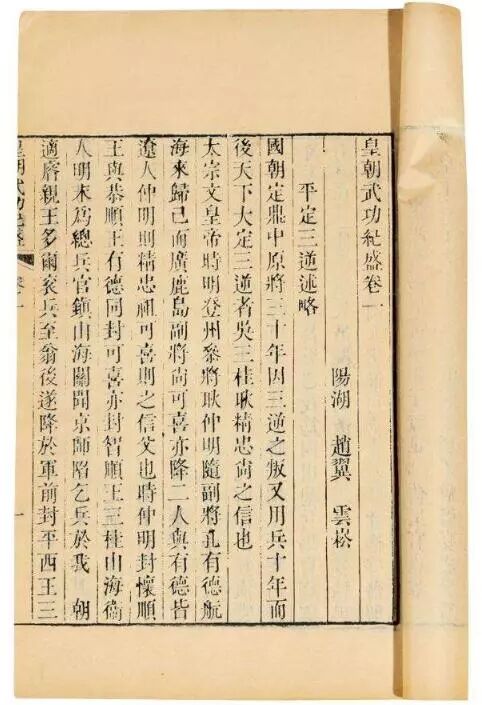 皇朝武功紀盛卷一
陽湖 趙翼 雲崧
平定三逆述略
國朝定鼎中原將三十年因三逆之叛又用兵十年而
後天下大定三逆者吳三桂耿精忠尚之信也
太宗文皇帝時明登州叅將耿仲明隨副將孔有德航
海來歸已而廣鹿島副將尚可喜亦降二人與有德皆
遼人仲明則精忠祖可喜則之信父也時仲明封懷順
王與恭順王有德同封可喜亦封智順王三桂山海衞
人明末爲總兵官鎮山海關聞京師陷乞兵於我 朝
適睿親王多爾衮兵至翁後遂降於軍前封平西王三
皇朝武功紀盛 卷一 一